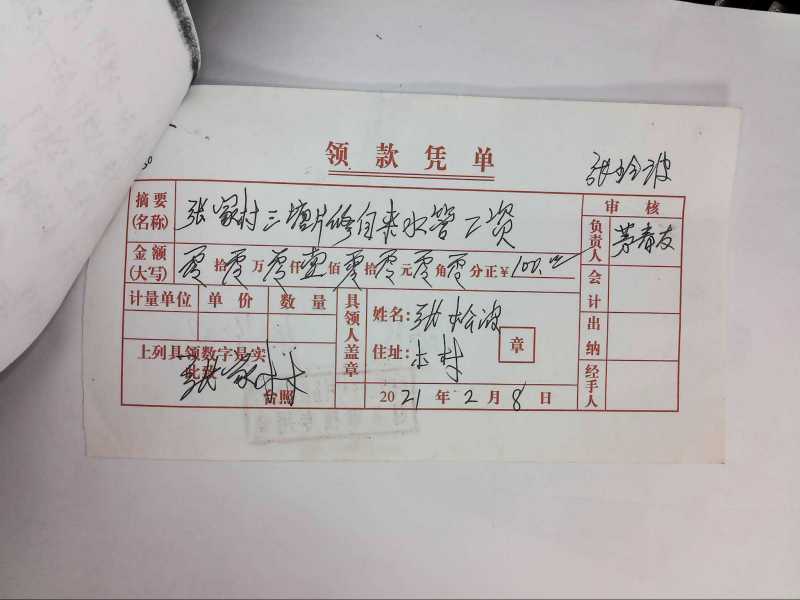 领款凭单
张拴波
摘要(名称) 张家村三塘片修自来水管工资
审核
负责人
金额(大写) 零拾零万零仟壹佰零拾零元零角零分正¥100.00
会计
计量单位 单价 数量
具领人盖章
姓名:张拴波
章
住址:本村
出纳
上列具领数字是实
此致
张家村
台照
2021年2月8日
经手人